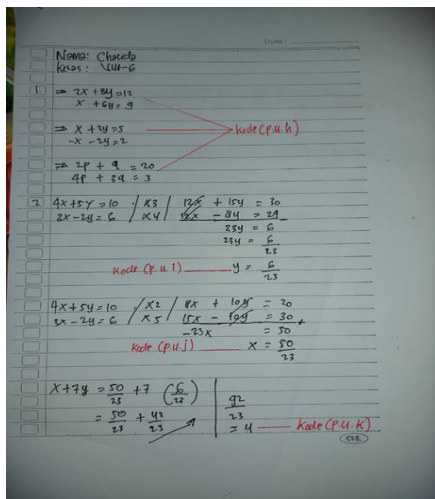 Date:
Nama: Chaeda
Kelas: VIII-6
1. ⇒ 2x + 8y = 12
x + 6y = 9
⇒ x + 3y = 5
-x - 2y = 2
kode (p.u.h)
⇒ 2p + q = 20
4p + 3q = 3
2. 4x + 5y = 10 / x3 / 12x + 15y = 30
3x - 2y = 6 / x4 / 12x - 8y = 24
23y = 6
23y = 6/23
kode (p.u.i) y = 6/23
4x + 5y = 10 / x2 / 8x + 10y = 20
3x - 2y = 6 / x5 / 15x - 10y = 30 +
-23x = 50
kode (p.u.j) x = 50/23
x + 7y = 50/23 + 7 (6/23)
= 50/23 + 42/23
92/23
= 4 kode (p.u.k)